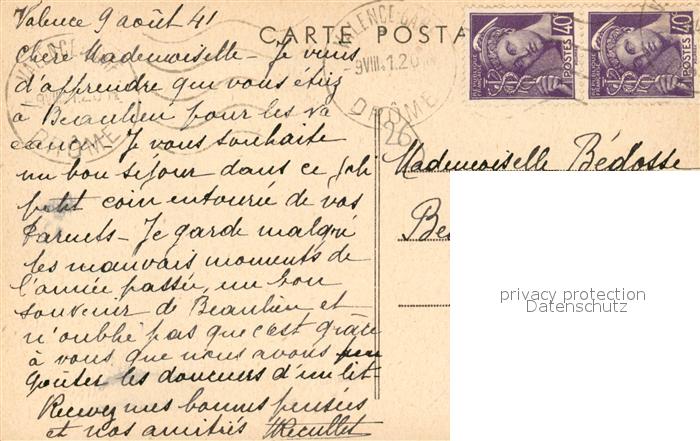 Valence 9 août 41
CARTE POSTA
VALENCE-GA
9 VIII 41
DRÔME
26
40c
POSTES
40c
POSTES
Chère Mademoiselle - Je viens
d'apprendre que vous étiez
à Beaulieu pour les va
cances - Je vous souhaite
un bon séjour dans ce joli
petit coin entourée de vos
parents - Je garde malgré
les mauvais moments de
l'année passée, un bon
souvenir de Beaulieu et
n'oublie pas que c'est grâce
à vous que nous avons pu
goûter les douceurs d'un lit -
Recevez mes bonnes pensées
et nos amitiés
Mademoiselle Bédosse
Be
privacy protection
Datenschutz